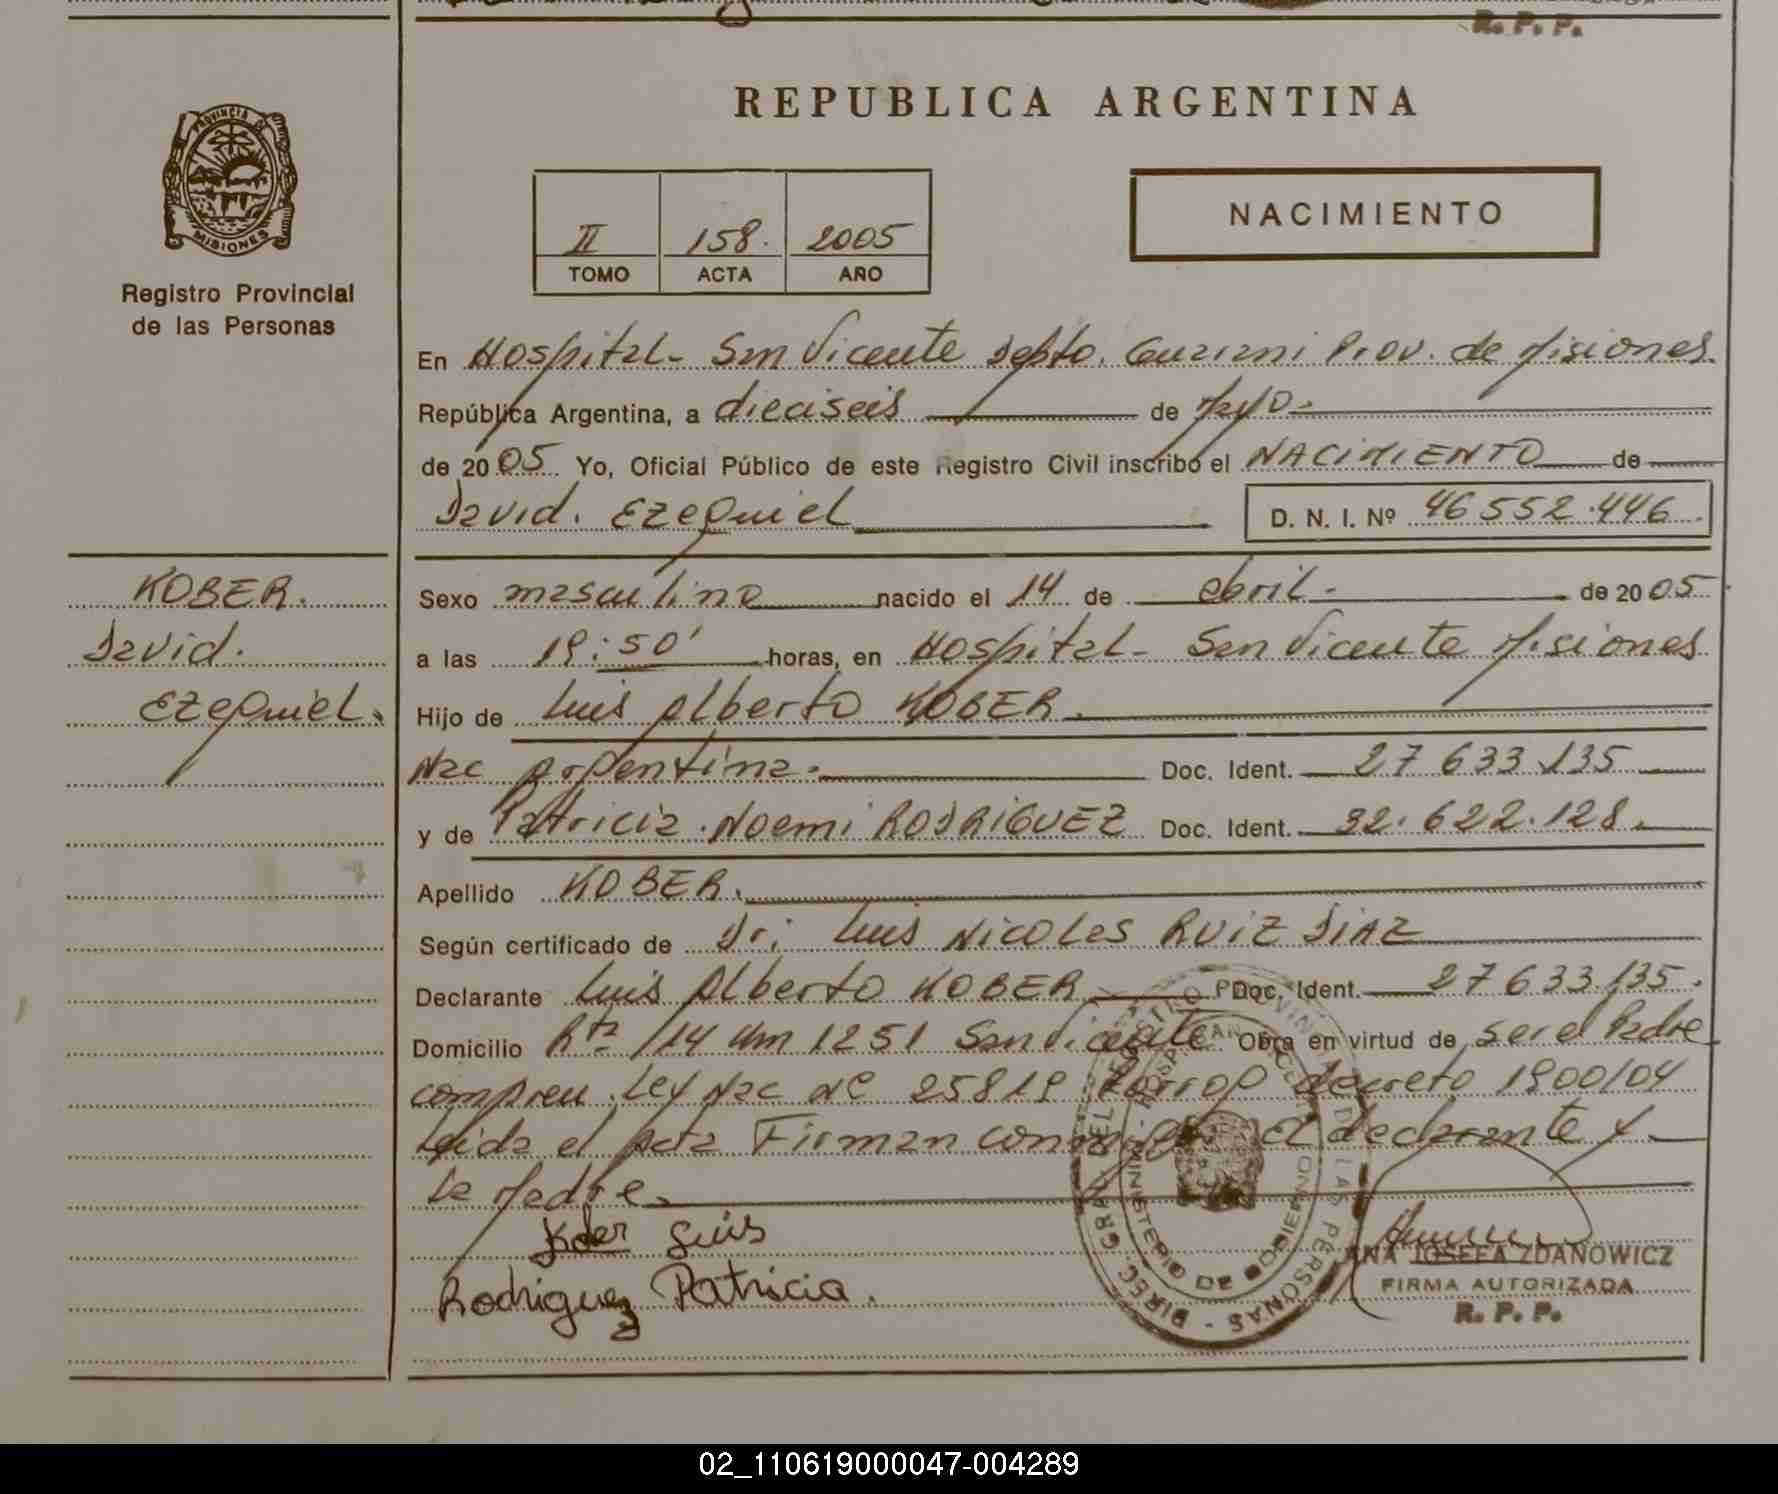 R. P. P.
REPUBLICA ARGENTINA
PROVINCIA DE
MISIONES
Registro Provincial
de las Personas
II 158. 2005
TOMO ACTA AÑO
NACIMIENTO
En Hospital- San Vicente Depto. Guarani Prov. de Misiones
República Argentina, a dieciseis de Mayo-
de 2005 Yo, Oficial Público de este Registro Civil inscribo el NACIMIENTO de
David. Ezequiel D. N. I. Nº 46552.446
KOBER.
David.
Ezequiel.
Sexo masculino nacido el 14 de abril- de 2005
a las 19:50' horas, en Hospital- San Vicente Misiones
Hijo de Luis Alberto KOBER.
Nac Argentina. Doc. Ident. 27 633.135
y de Patricia Noemi RODRIGUEZ Doc. Ident. 32.622.128.
Apellido KOBER.
Según certificado de Dr: Luis Nicoles RUIZ DIAZ
Declarante Luis Alberto KOBER Doc. Ident. 27 633.135.
Domicilio Rta /14 Km 1251 San Vicente Obra en virtud de ser el Padre
compren. Ley Nac Nº 25819 Prorrog decreto 1900/04
Leida el Acta Firman conmigo el declarante y
la Madre.
Kober Luis
Rodriguez Patricia.
DIREC. GRAL. DEL REGISTRO PROVINCIAL DE LAS PERSONAS
MINISTERIO DE GOBIERNO
ANA JOSEFA ZDANOWICZ
FIRMA AUTORIZADA
R. P. P.
02_110619000047-004289